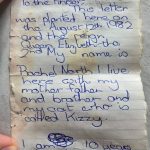 To the finder. This letter
was planted here on
the August 5th 1982
and the reign
Queen Elizabeth the
My name is
Rachel North I live
here with my
mother father
and brother and
my cat who is
called Kizzy.
I am 10 years